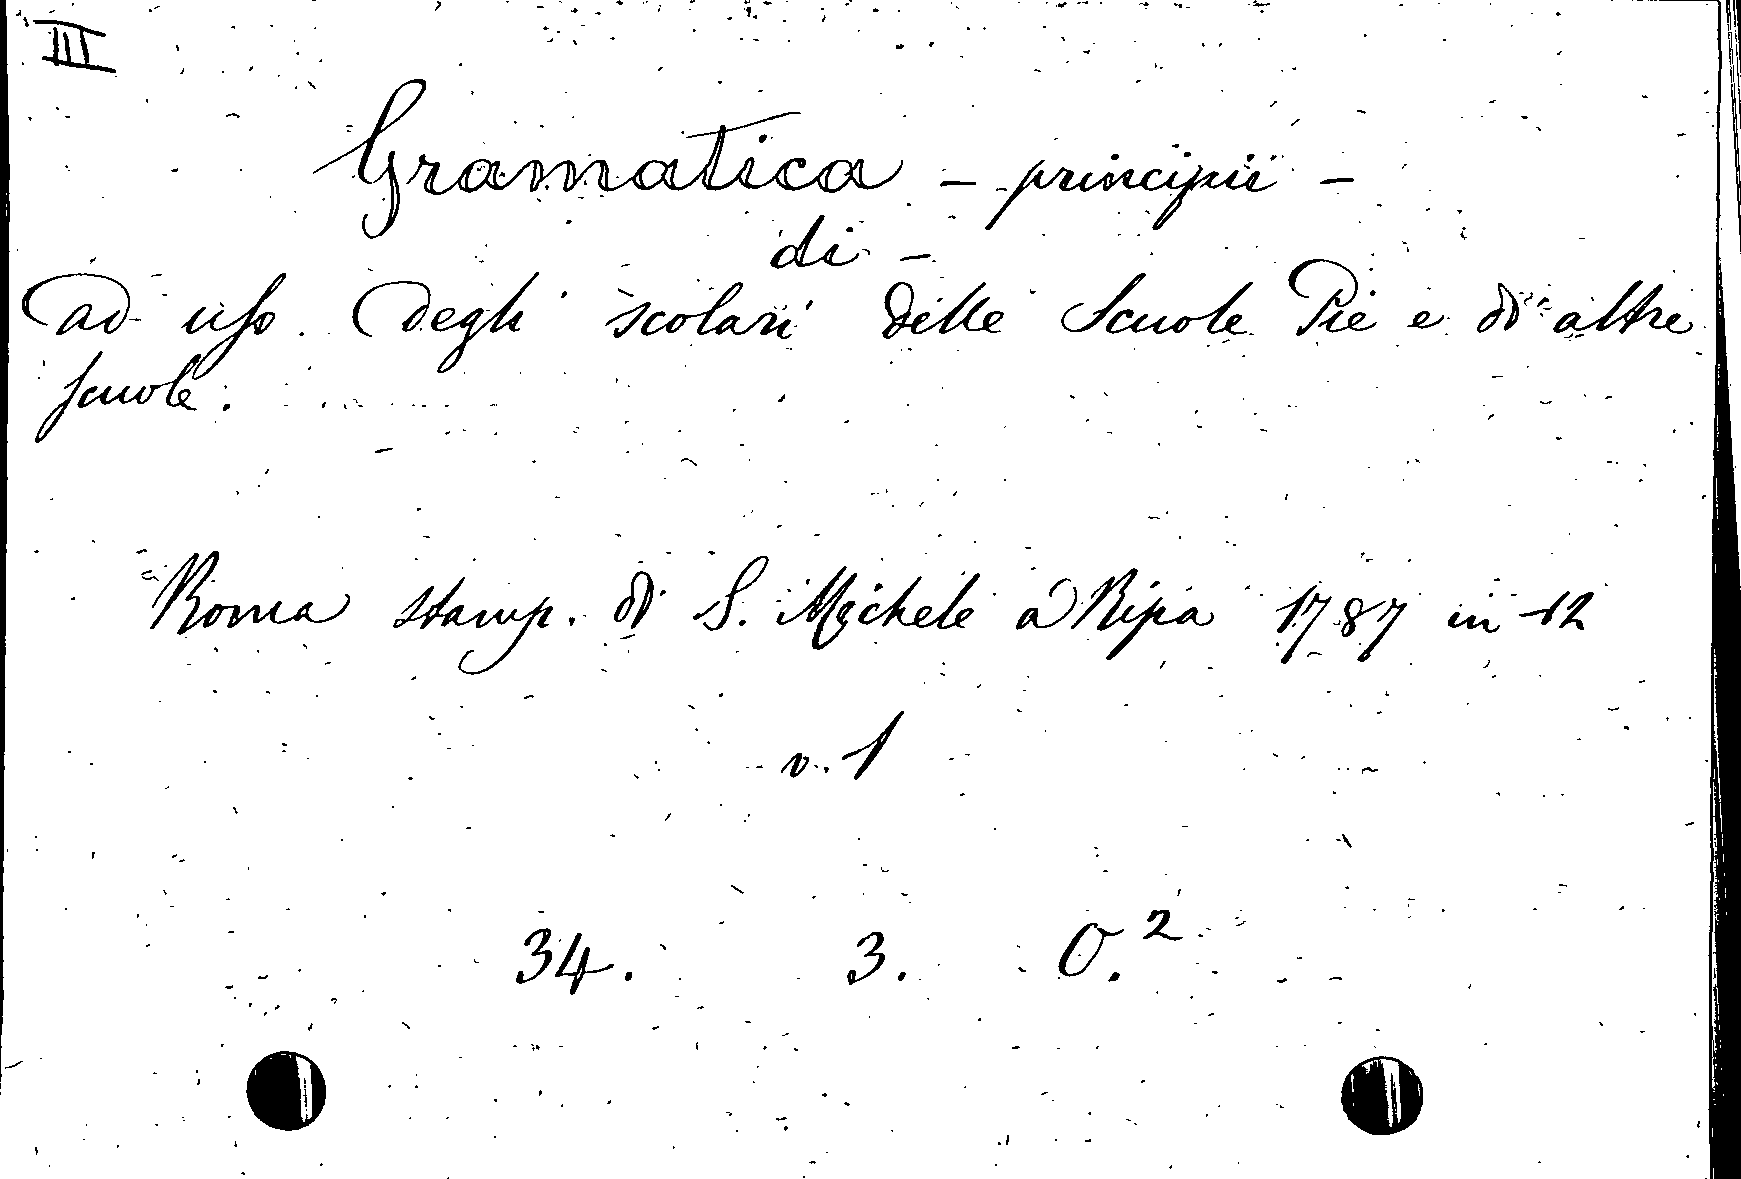 III
Gramatica - principii -
di -
ad uso degli scolari delle Scuole Pie e di altre
scuole.
Roma stamp. di S. Michele a Ripa 1787 in 12
v. 1
34. 3. O.²